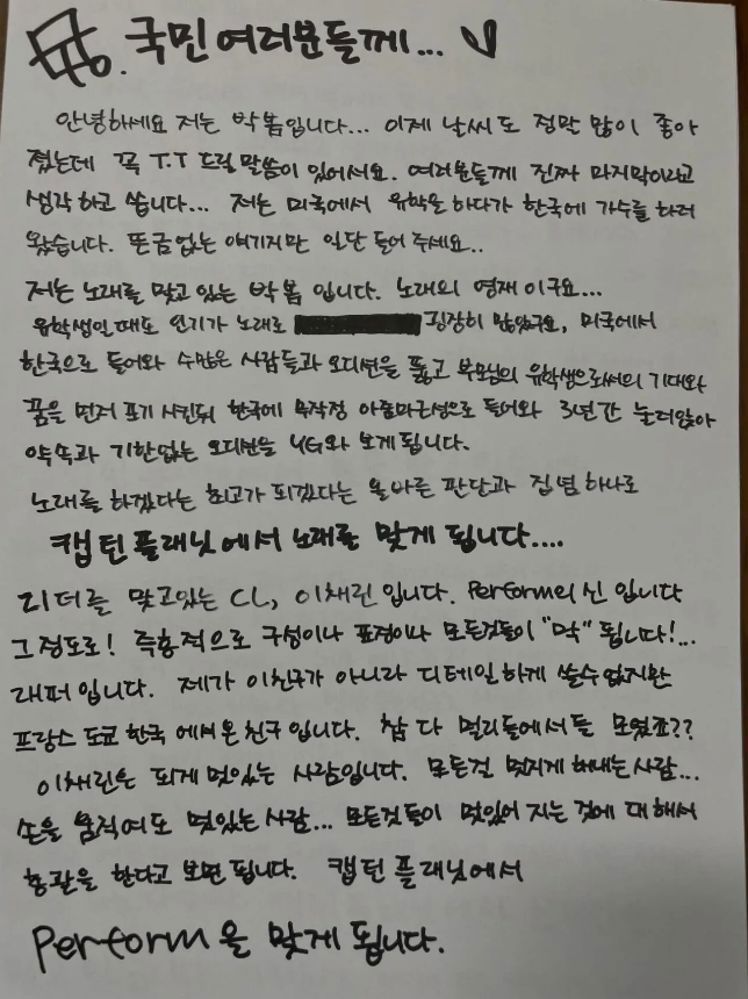 국민 여러분들께...
안녕하세요 저는 박봄입니다... 이제 날씨도 정막 많이 좋아
졌는데 꼭 T.T 드릴 말씀이 있어서요. 여러분들께 진짜 마지막이라고
생각하고 씁니다... 저는 미국에서 유학을 하다가 한국에 가수를 하러
왔습니다. 뜬금없는 얘기지만 일단 들어 주세요..
저는 노래를 맞고 있는 박봄 입니다. 노래의 영재 이구요...
유학생일때도 인기가 노래로 굉장히 많았구요, 미국에서
한국으로 들어와 수많은 사람들과 오디션을 뚫고 부모님의 유학생으로써의 기대와
꿈을 먼저 포기 시킨뒤 한국에 무작정 아줌마근성으로 들어와 3년간 눌러앉아
약속과 기한없는 오디션을 YG와 보게됩니다.
노래를 하겠다는 최고가 되겠다는 올바른 판단과 집념 하나로
캡틴플래닛에서 노래를 맞게 됩니다....
리더를 맞고있는 CL, 이채린입니다. Perform의 신 입니다
그정도로! 즉흥적으로 구성이나 표정이나 모든것들이 "막" 됩니다!...
래퍼입니다. 제가 이친구가 아니라 디테일하게 쓸수없지만
프랑스 도쿄 한국 에서온 친구입니다. 참 다 멀리들에서들 모였죠??
이채린은 되게 멋있는 사람입니다. 모든걸 멋지게 해내는사람...
손을 움직여도 멋있는사람... 모든것들이 멋있어 지는 것에 대해서
총괄을 한다고 보면 됩니다. 캡틴 플래닛에서
Perform을 맞게 됩니다.